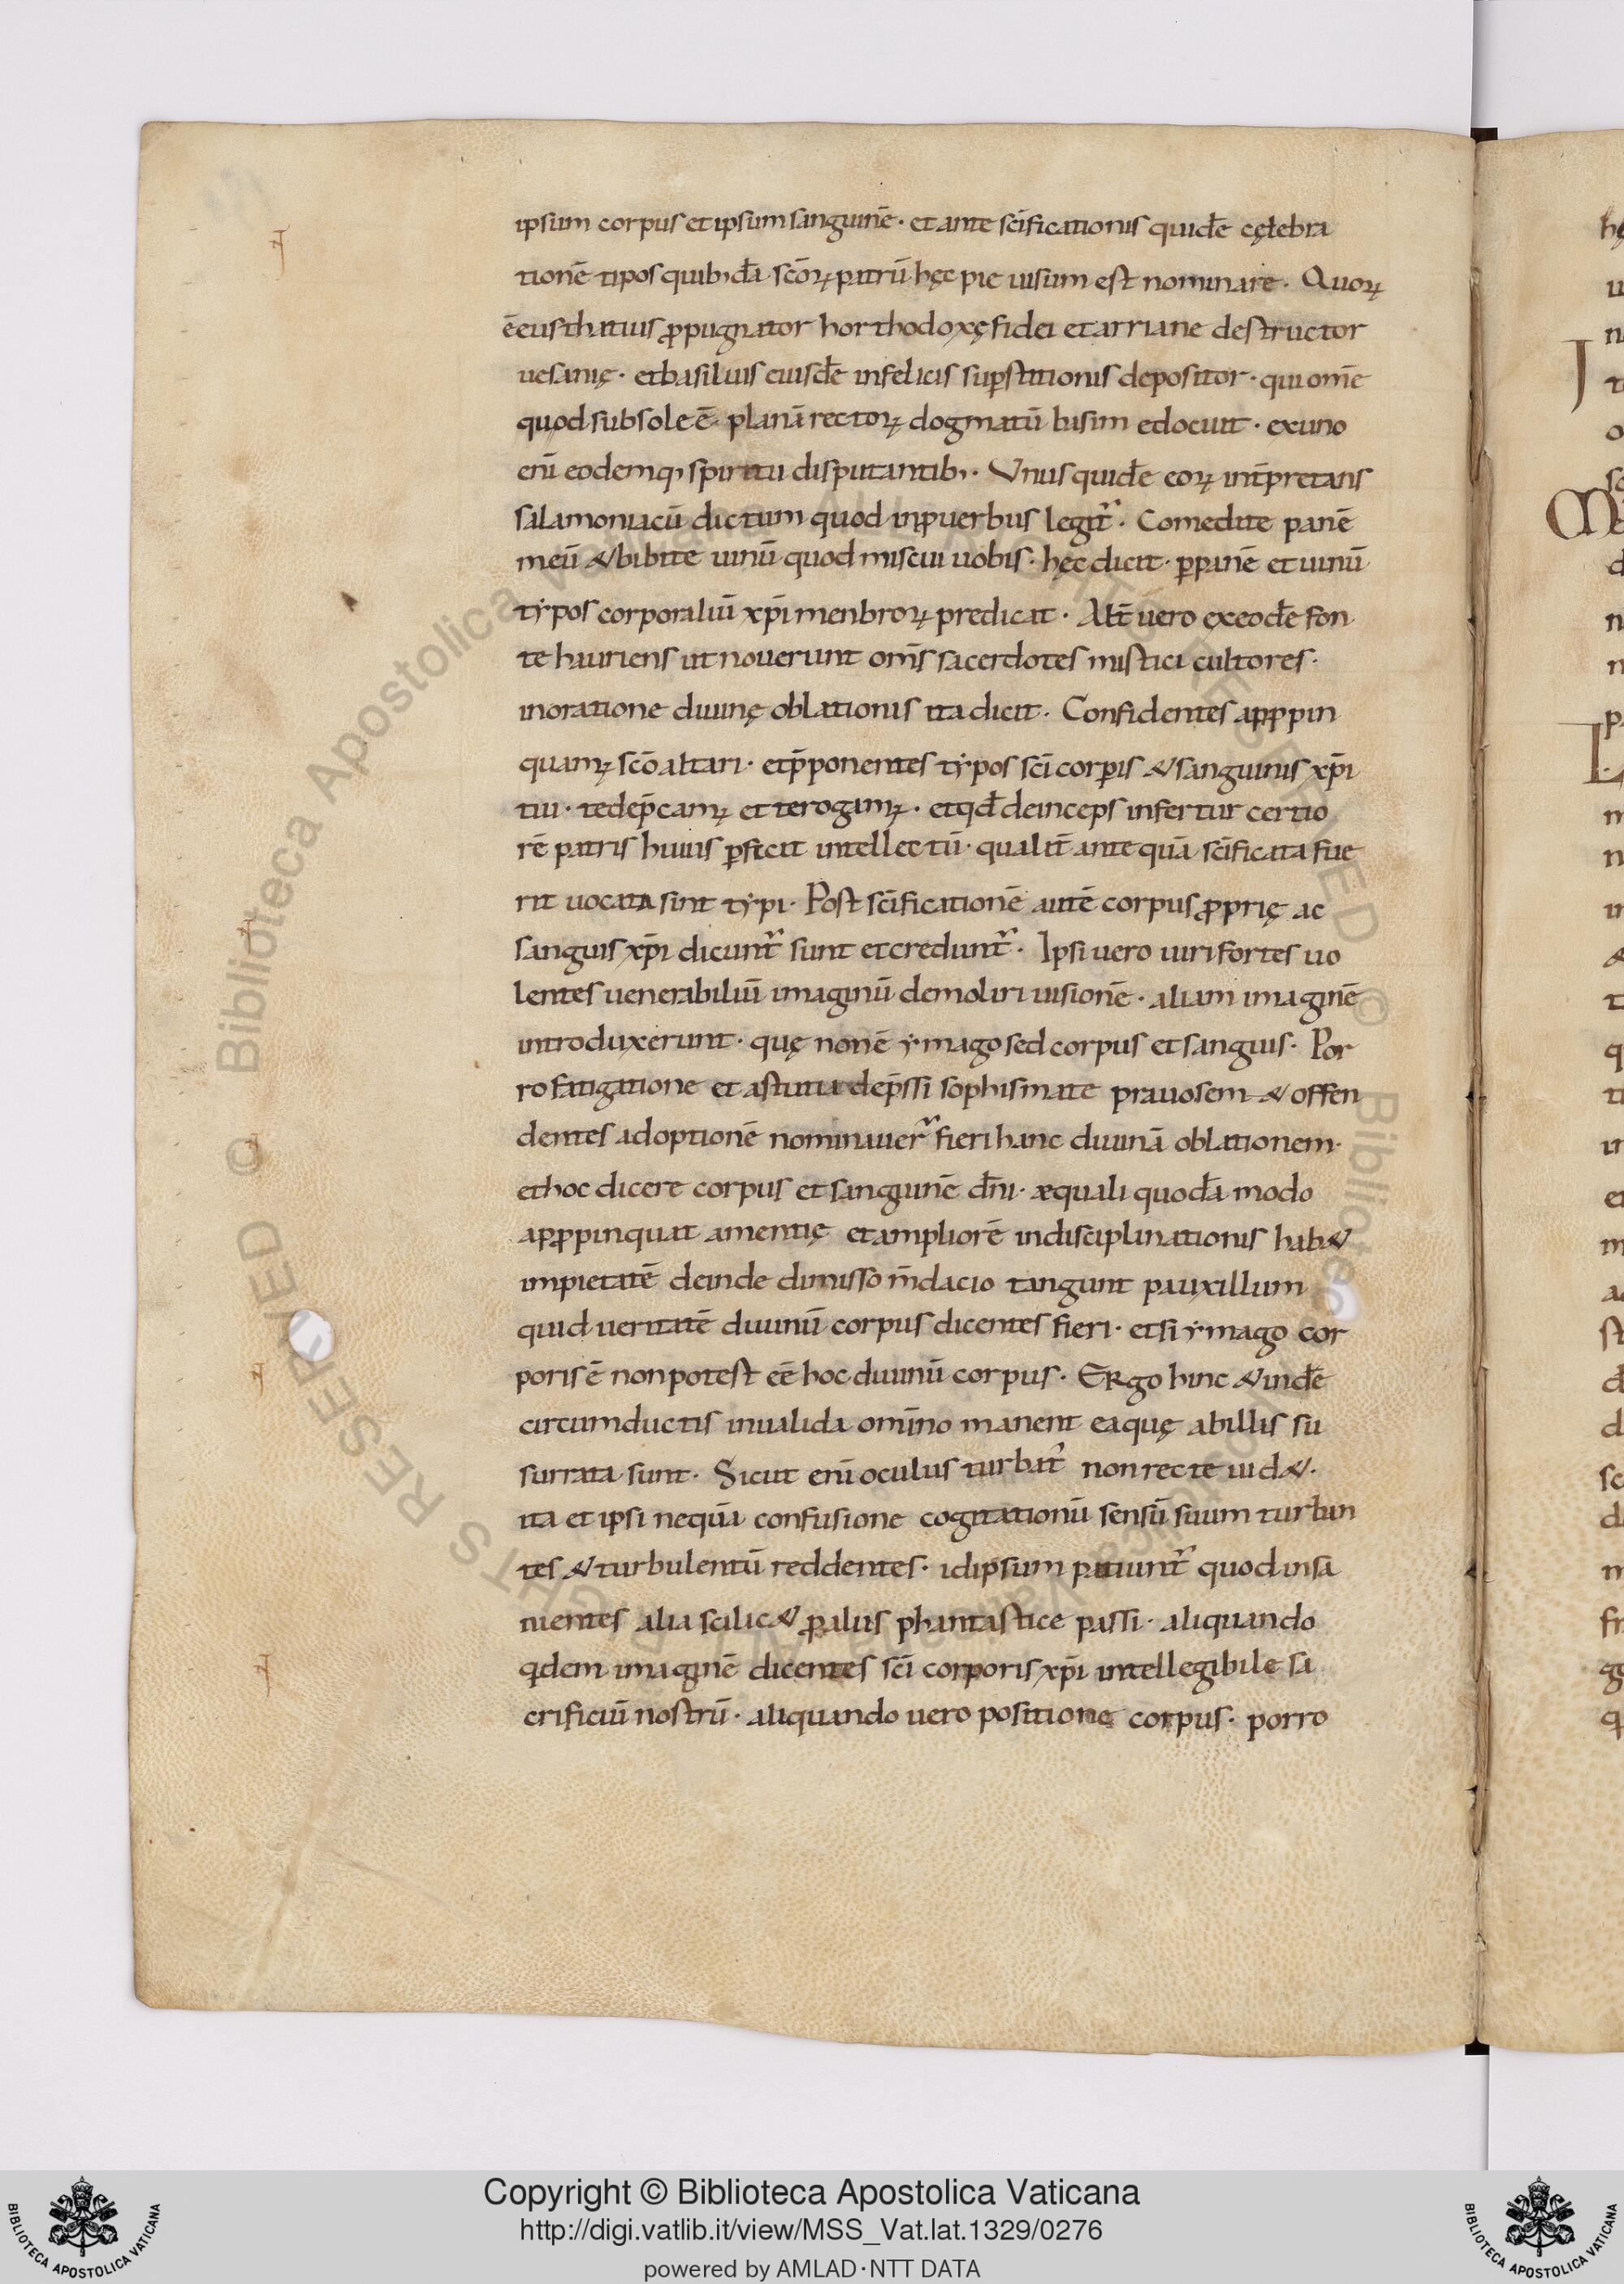 ipsum corpus et ipsum sanguinē · et ante scīficationis quidē cęlebra
tionē tipos quibꝰdā scōꝝ patrū hęc pie uisum est nominare · Quoꝝ
ē eusthatius ꝓpugnator horthodoxę fidei et arriane destructor
uesanię · et basilius eiusdē infelicis suꝑstitionis depositor · qui omē
quod sub sole ē planā rectoꝝ dogmatū basim edocuit · ex uno
enī eodemqꝫ spiritu disputantibꝫ · Vnus quidē eoꝝ int̄pretans
salamoniacū dictum quod in ꝓuerbiis legit᷑ · Comedite panē
meū & bibite uinū quod miscui uobis · hęc dicit · ꝑ panē et uinū
tẏpos corporaliū xp̄i menbroꝝ predicat · Alt̄ uero ex eodē fon
te hauriens ut nouerunt om̄s sacerdotes mistici cultores ·
in oratione diuinę oblationis ita dicit · Confidentes apꝓpin
quamꝝ scō altari · et p̄ponentes tẏpos scī corꝑis & sanguinis xp̄i
tui · te dep̄camꝝ et te rogamꝝ · et qd̄ deinceps infertur certio
rē patris huius ꝑfecit intellectū · qualit̄ ante quā scīficata fue
rit uocata sint tẏpi · Post scīficationē autē corpus ꝓprię ac
sanguis xp̄i dicunt᷑ sunt et credunt᷑ · Ipsi uero uiri fortes uo
lentes uenerabiliū imaginū demoliri uisionē · aliam imaginē
introduxerunt · quę non ē ẏmago sed corpus et sanguis · Por
ro fatigatione et astutia dep̄ssi sophismate prauo semet offen
dentes adoptionē nominauer᷑ fieri hanc diuinā oblationem ·
et hoc dicere corpus et sanguinē dn̄i · æquali quodā modo
apꝓpinquat amentię et ampliorē indisciplinationis hab&
impietatē deinde dimisso m̄dacio tangunt pauxillum
quid ueritatē diuinū corpus dicentes fieri · et si ẏmago cor
poris ē non potest eē hoc diuinū corpus · ERgo hinc & indē
circumductis inualida omīno manent ea quę ab illis su
surrata sunt · Sicut enī oculus turbat᷑ non recte uid& ·
ita et ipsi nequā confusione cogitationū sensū suum turban
tes & turbulentū reddentes · id ipsum patiunt᷑ quod insa
nientes alia scilic& ꝓ aliis phantastice passi · aliquando
qͥdem imaginē dicentes scī corporis xp̄i intellegibile sa
crificiū nostrū · aliquando uero positione corpus · porro
Copyright © Biblioteca Apostolica Vaticana
http://digi.vatlib.it/view/MSS_Vat.lat.1329/0276
powered by AMLAD·NTT DATA